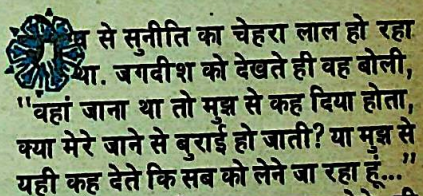 से सुनीति का चेहरा लाल हो रहा
था. जगदीश को देखते ही वह बोली,
"वहां जाना था तो मुझ से कह दिया होता,
क्या मेरे जाने से बुराई हो जाती? या मुझ से
यही कह देते कि सब को लेने जा रहा हूं..."